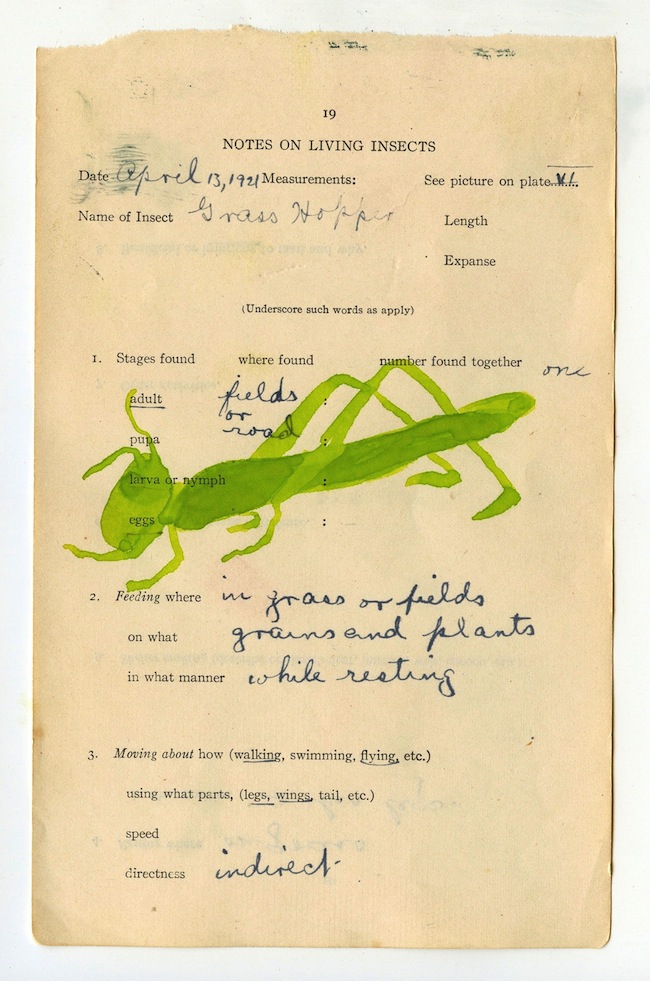 19
NOTES ON LIVING INSECTS
Date April 13, 1921 Measurements: See picture on plate VI.
Name of Insect Grass Hopper Length
Expanse
(Underscore such words as apply)
1. Stages found where found number found together one
adult fields :
or
pupa road :
larva or nymph :
eggs :
2. Feeding where in grass or fields
on what grains and plants
in what manner while resting
3. Moving about how (walking, swimming, flying, etc.)
using what parts, (legs, wings, tail, etc.)
speed
directness indirect